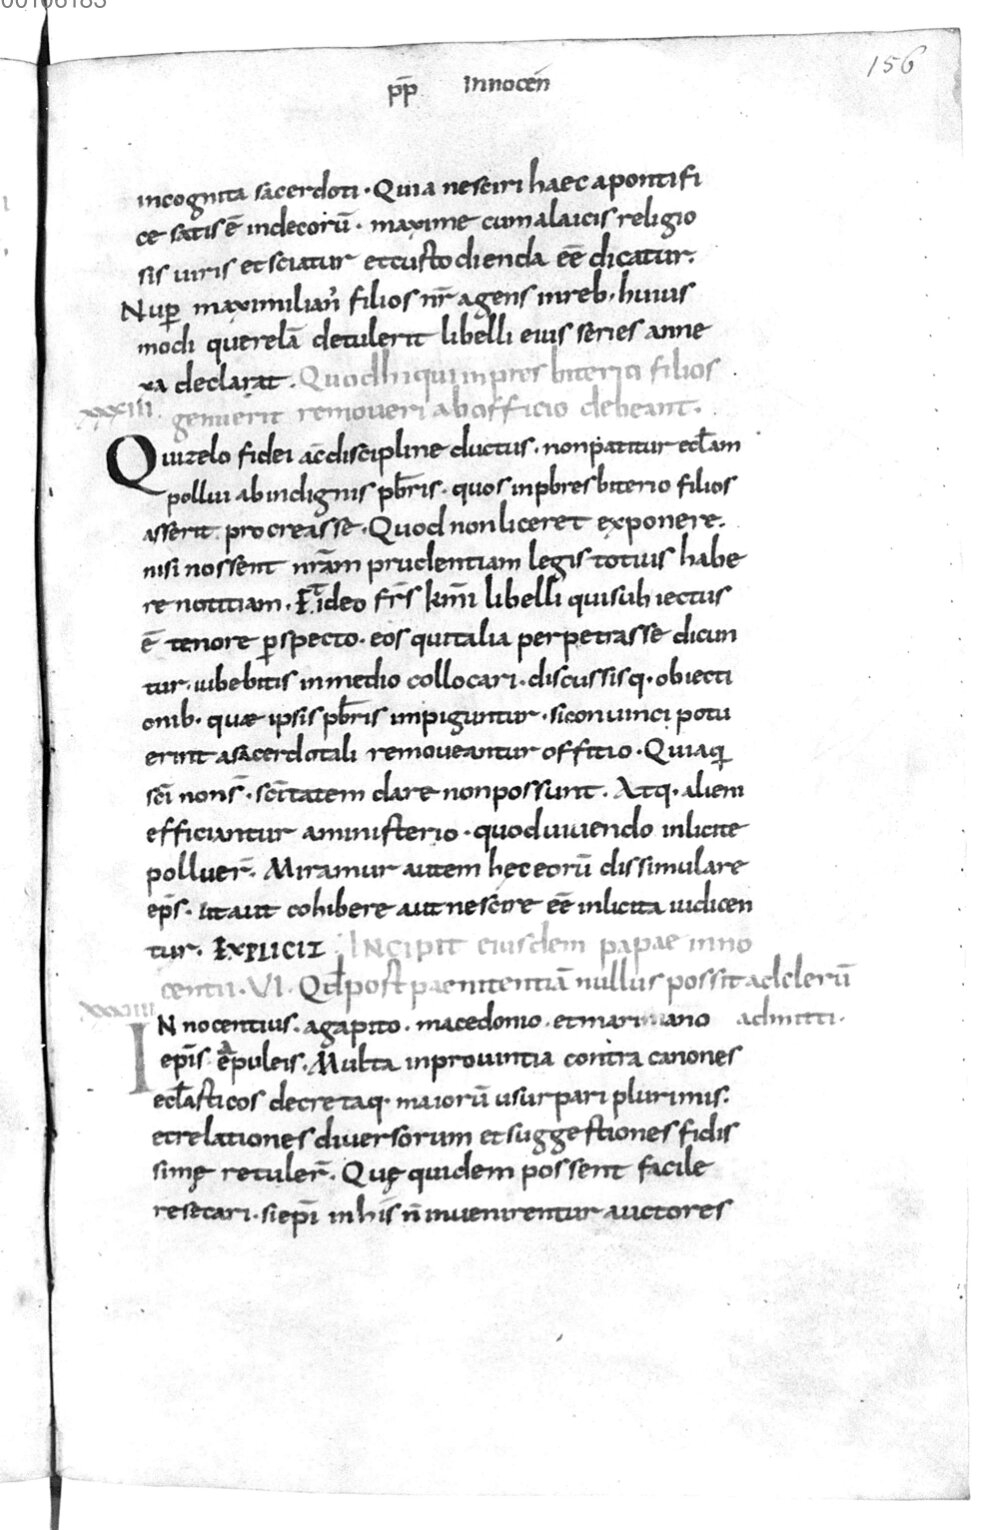 156
pp̄ Innocen̄
incognita sacerdoti · Quia nesciri haec a pontifi
ce satis ē indecorū · maxime cum a laicis religio
sis uiris et sciatur et custodienda eē dicatur.
Nuꝑ maximilian᾽ filios nr̄ agens in reb· huius
modi querelā detulerit libelli eius series anne
xa declarat. Quod hi qui in presbiterio filios
xxxiii. genuerit remoueri ab officio debeant.
Qui zelo fidei ac discipline ductus · non patitur ecl̄am
pollui ab indignis pb̄ris · quos in pbresbiterio filios
asserit procreasse. Quod non liceret exponere.
nisi nossent nr̄am prudentiam legis totius habe
re notitiam. Et ideo fr̄s km̄i libelli qui subiectus
ē tenore ꝑspecto · eos qui talia perpetrasse dicun
tur · iubebitis in medio collocari · discussisq· obiecti
onib· quae ipsis pb̄ris impiguntur · si conuinci potu
erint a sacerdotali remoueantur offitio · Quia q̄
sc̄i non s̄ · sc̄itatem dare non possunt. Atq· aliem
efficiantur a ministerio · quod uiuendo inlicite
polluer̄. Miramur autem hęc eorū dissimulare
ep̄s · ut aut cohibere aut nescire eē inlicita iudicen
tur. EXPLICIT. INCIPIT eiusdem papae inno
centii · VI · Qd̄ post paenitentiā nullus possit ad clerū
xxxiiii admitti.
INnocentius · agapito · macedonio · et mariniano
ep̄is apuleis. Multa in prouintia contra canones
ecl̄asticos decretaq· maiorū usurpari plurimis:
et relationes diuersorum et suggestiones fidis
simę retuler̄. Quę quidem possent facile
resecari · si ep̄i in his n̄ inuenirentur auctores